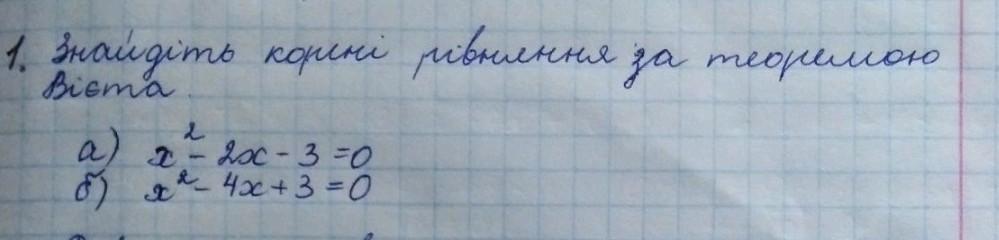 1. Знайдіть корені рівняння за теоремою
Вієта.
а) x² - 2x - 3 = 0
б) x² - 4x + 3 = 0